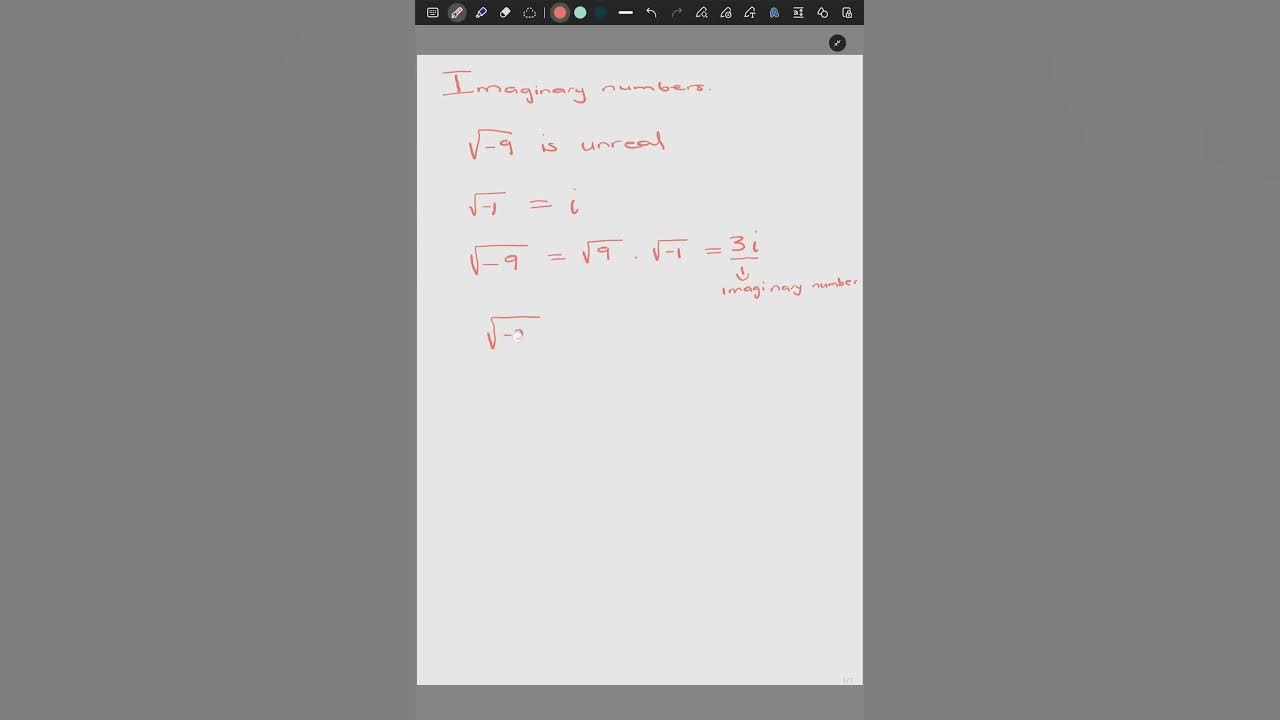 Imaginary numbers.
√-9 is unreal
√-1 = i
√-9 = √9 . √-1 = 3i
imaginary number
√-
1/1